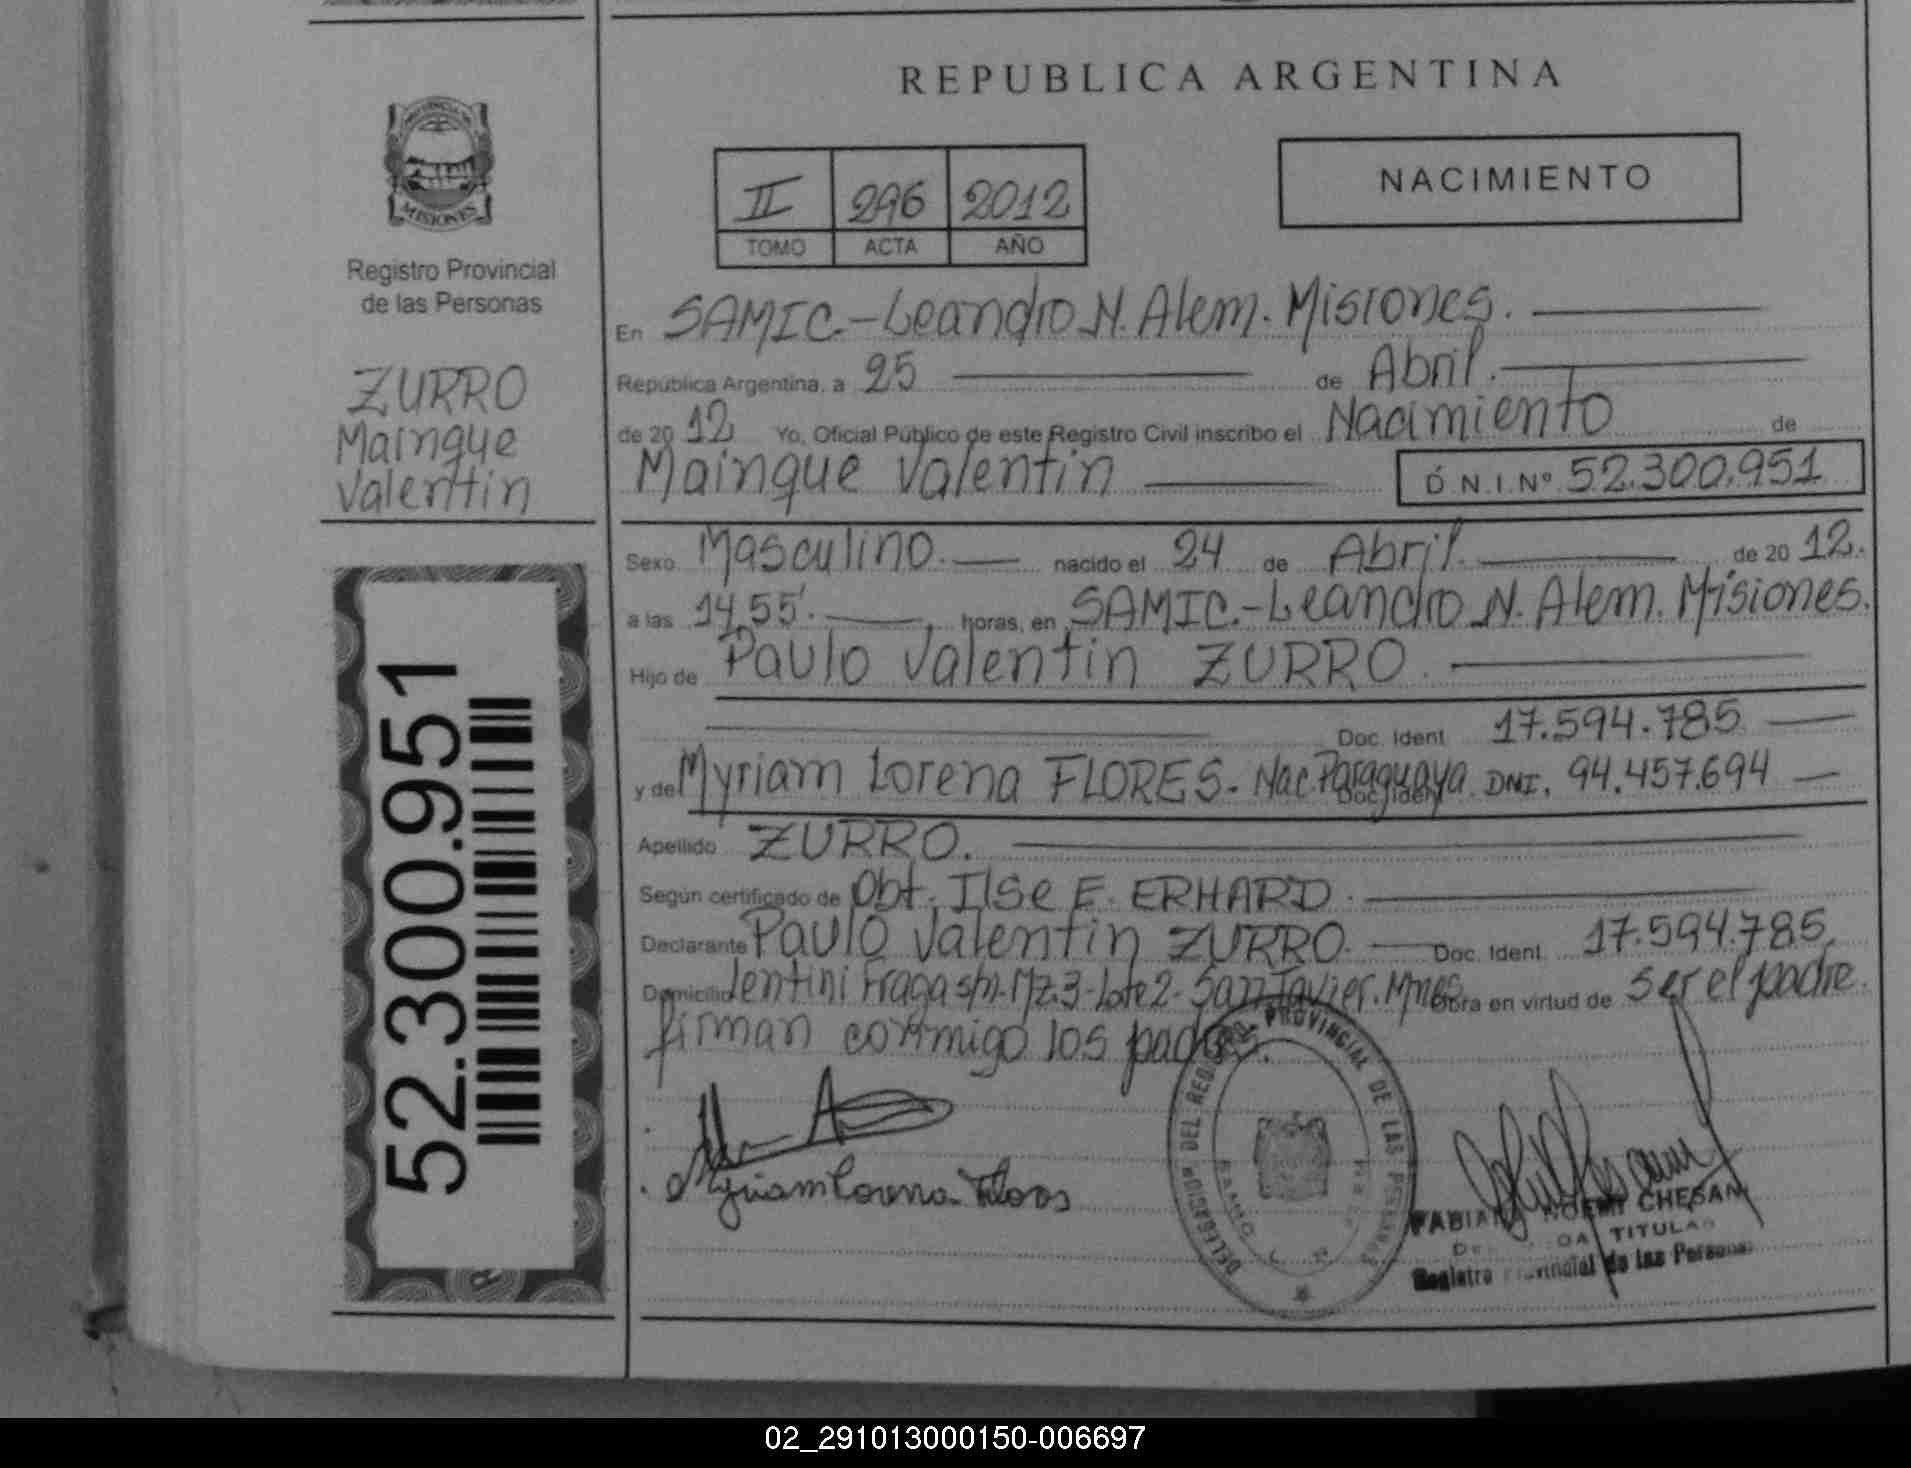 REPUBLICA ARGENTINA
PROVINCIA DE
MISIONES
Registro Provincial
de las Personas
ZURRO
Mainque
Valentin
52.300.951
II 296 2012
TOMO ACTA AÑO
NACIMIENTO
En SAMIC.-Leandro N. Alem. Misiones.
República Argentina, a 25 de Abril.
de 2012 Yo, Oficial Público de este Registro Civil inscribo el Nacimiento de
Mainque Valentin D.N.I.Nº 52.300.951
Sexo Masculino. nacido el 24 de Abril. de 2012.
a las 14,55'. horas, en SAMIC.-Leandro N. Alem. Misiones.
Hijo de Paulo Valentin ZURRO.
Doc. Ident. 17.594.785
y de Myriam Lorena FLORES. Nac. Paraguaya. DNI. 94.457.694
Doc. Ident.
Apellido ZURRO.
Según certificado de Obt. Ilse E. ERHARD.
Declarante Paulo Valentin ZURRO. Doc. Ident. 17.594.785.
Domicilio Lentini Fraga s/n. Mz.3-Lote 2. San Javier. Mnes Obra en virtud de ser el padre.
firman conmigo los padres.
Myriam Lorena Flores
DELEGACION DEL REGISTRO PROVINCIAL DE LAS PERSONAS
NOEMI CHESANI
TITULAR
Registro Provincial de las Personas
02_291013000150-006697